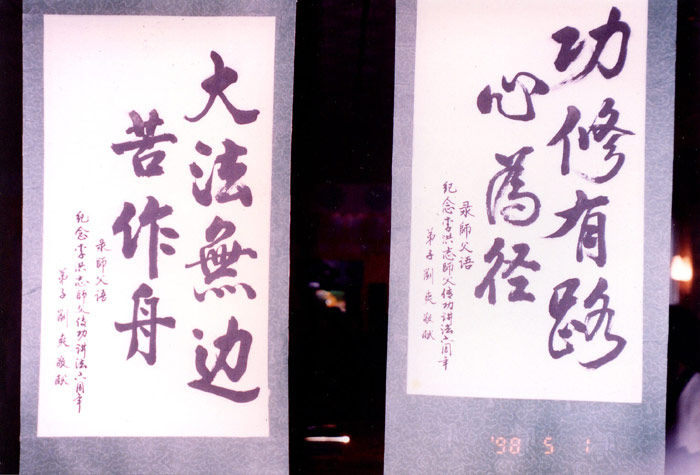 功修有路
心為径
录師父语
纪念李洪志師父传功讲法六周年
弟子劉爽敬献
大法無边
苦作舟
录師父语
纪念李洪志師父传功讲法六周年
弟子劉爽敬献
'98 5 1